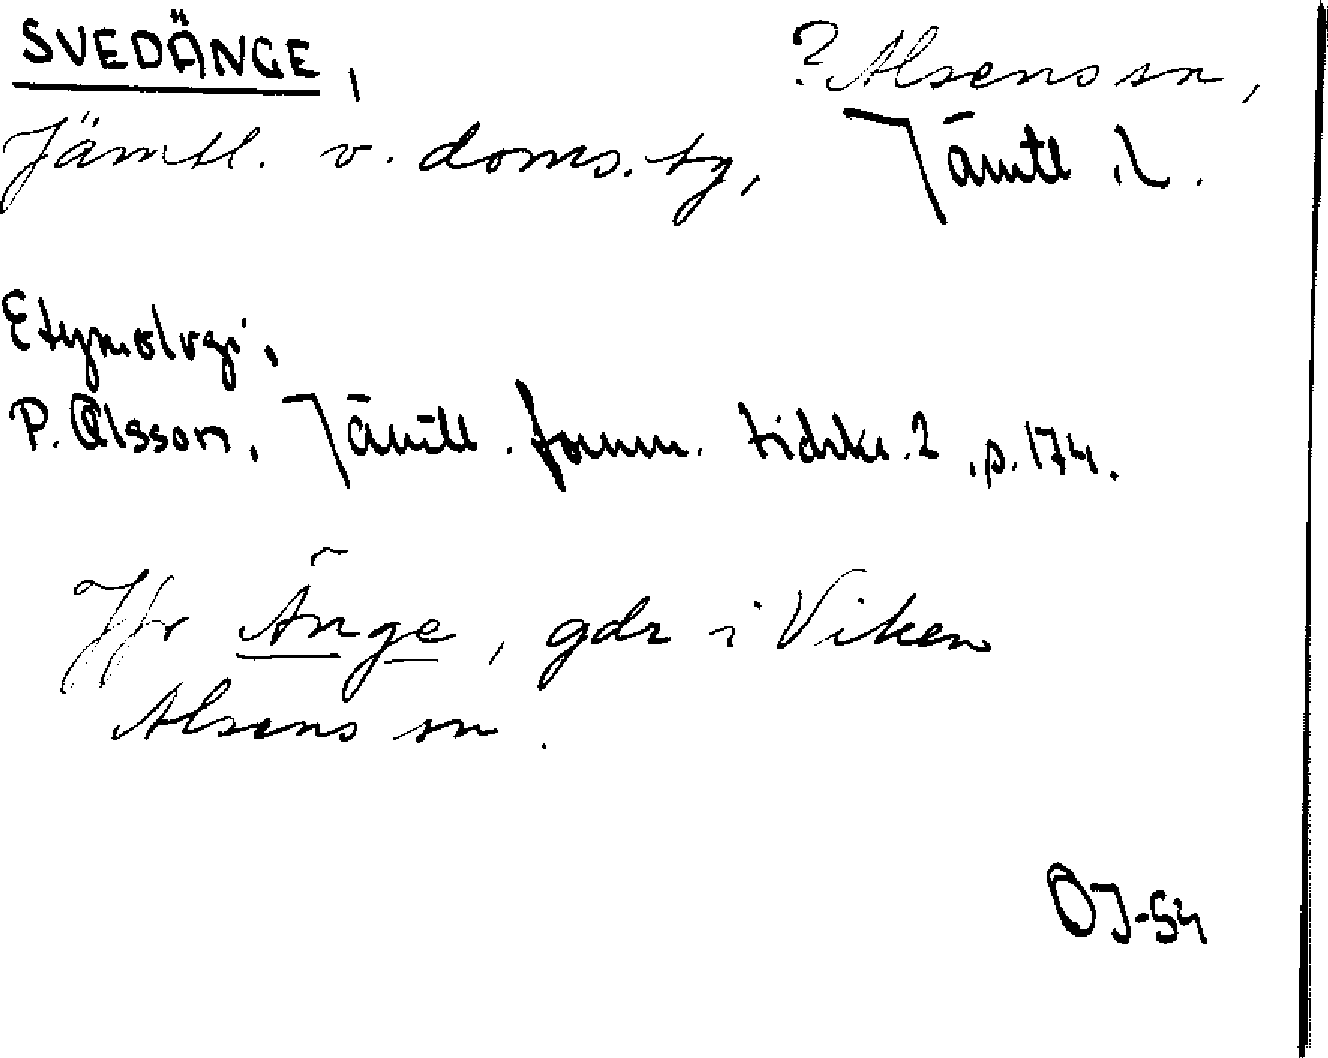 SVEDÄNGE, ? Alsens sn,
Jämtl. v. doms. tg, Jämtl. l.
Etymologi,
P. Olsson, Jämtl. fornm. tidskr. 2, p. 174.
Jfr Änge, gdr i Viken
Alsens sn.
OJ-54